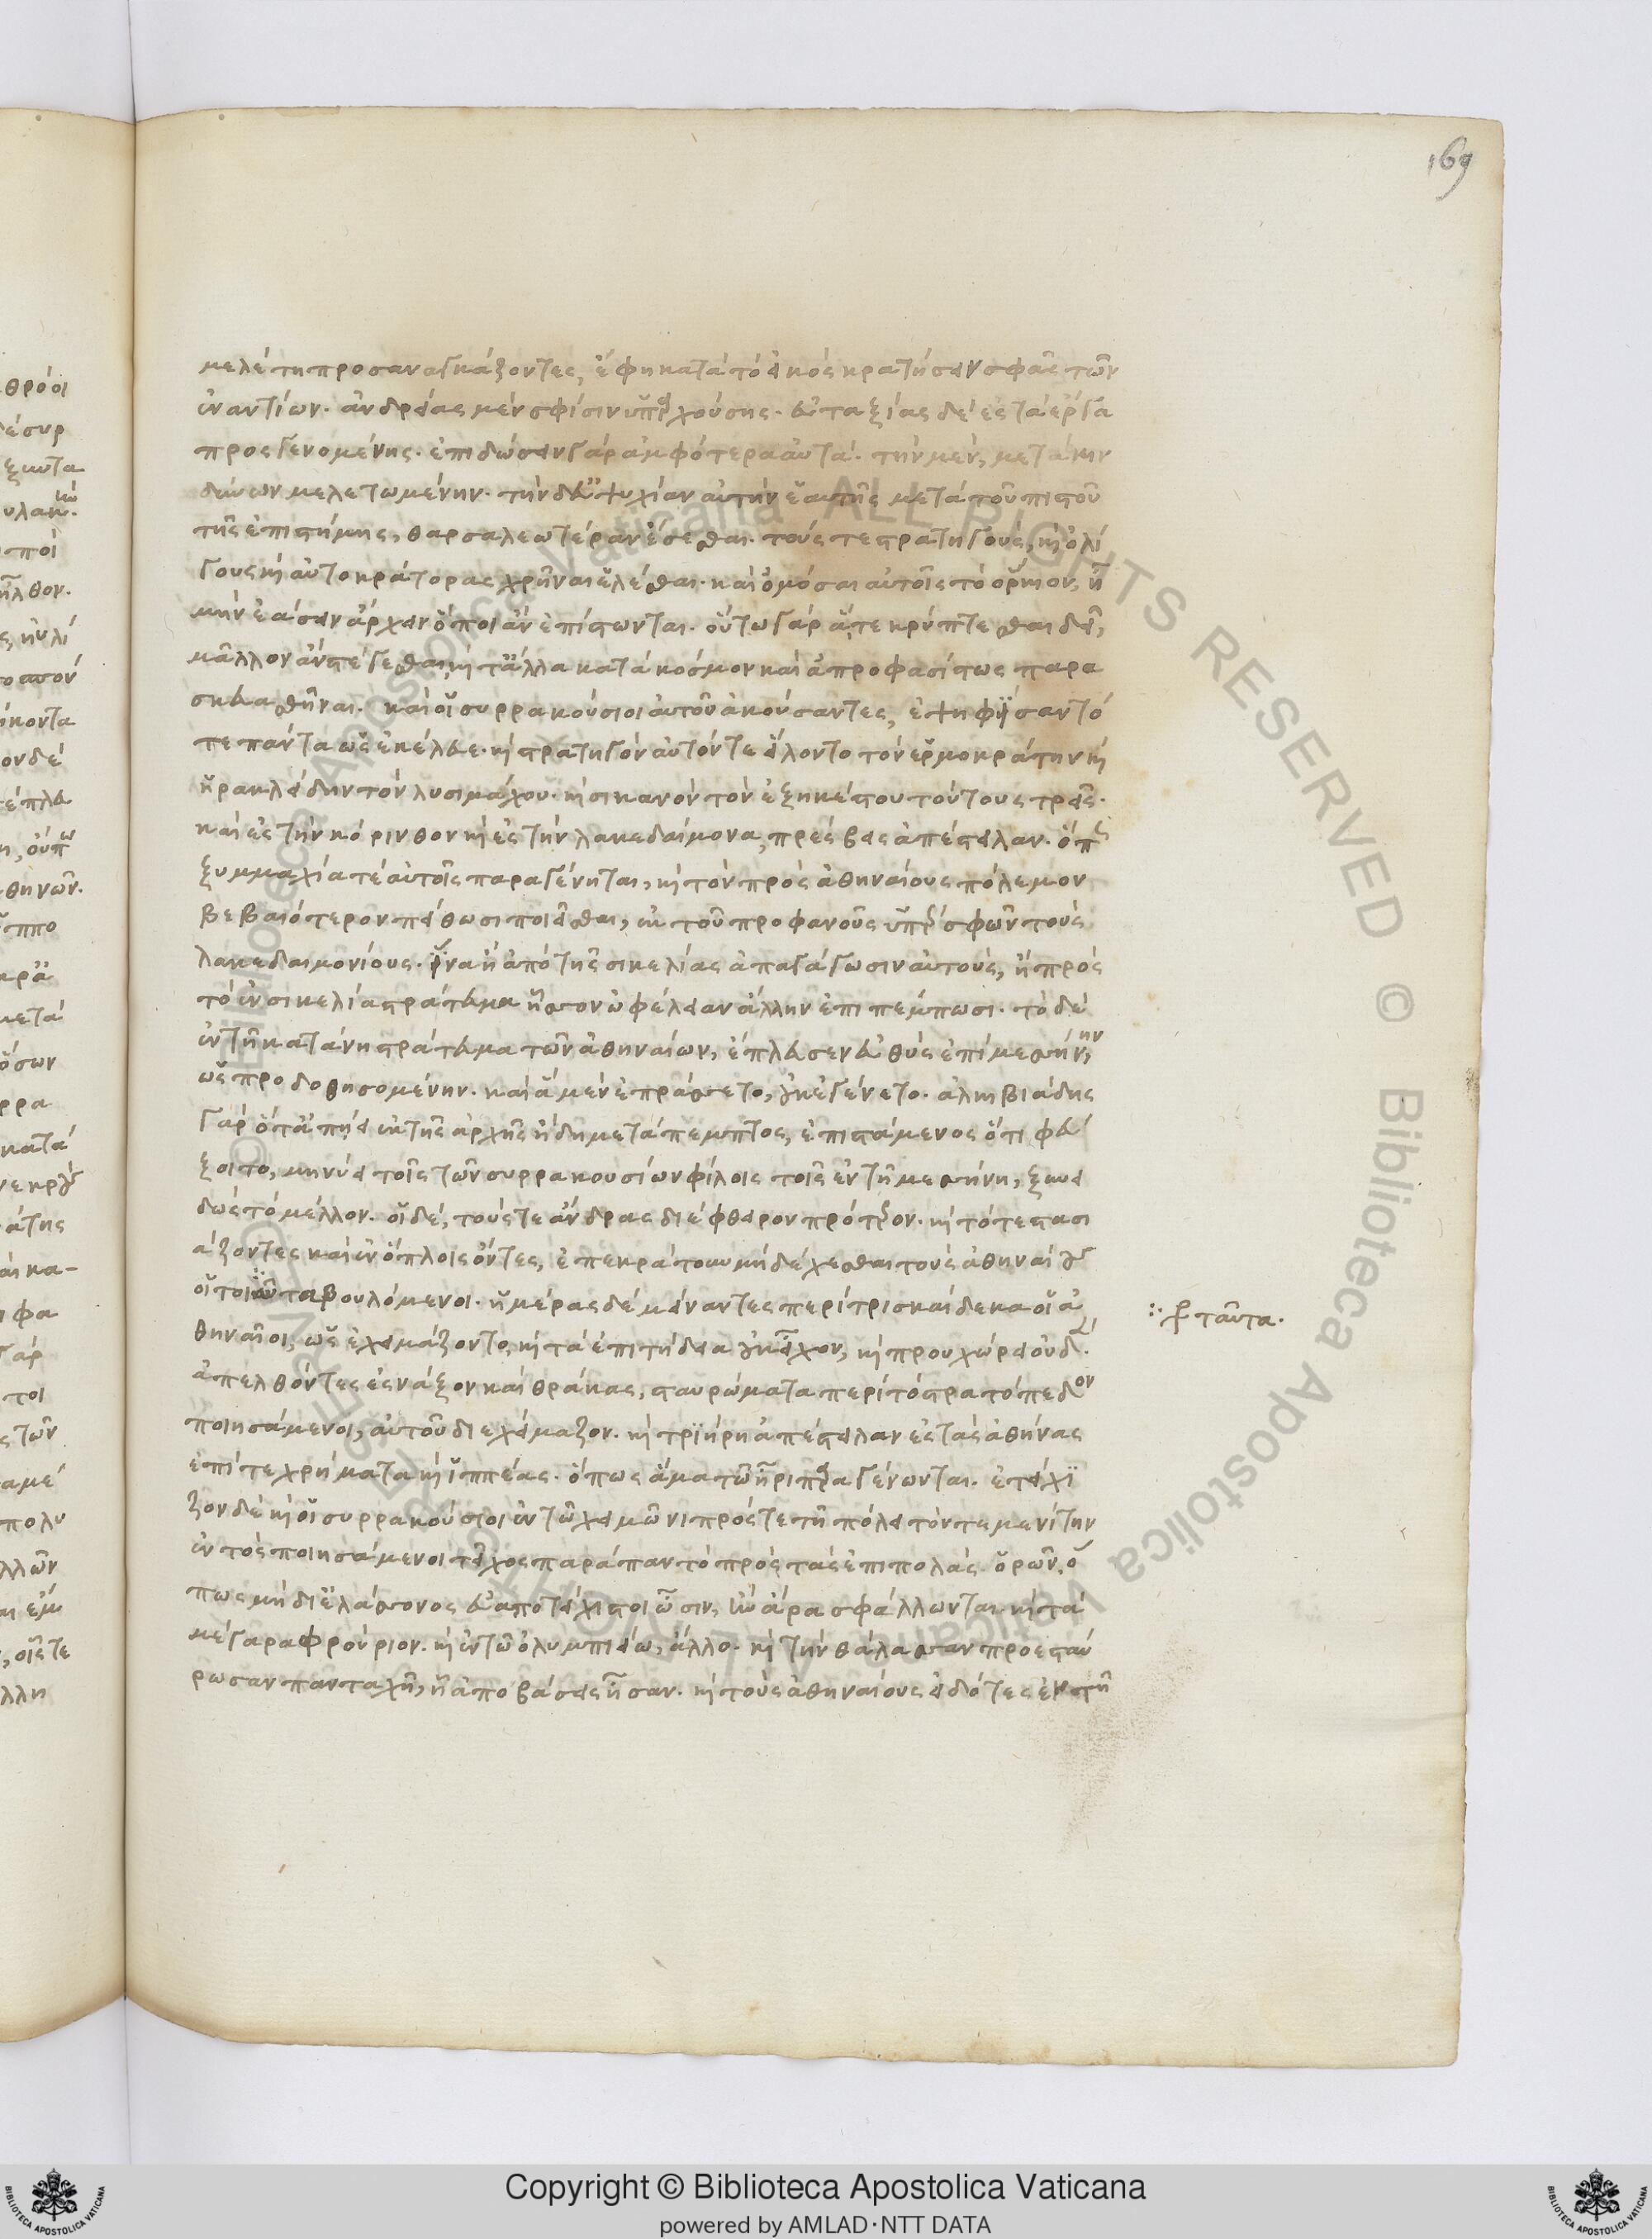 169
μελέτη προσαναγκάζοντες, ἔφη κατὰ τὸ εἰκὸς κρατήσειν σφᾶς τῶν
ἐναντίων. ἀνδρείας μέν σφίσιν ὑπαρχούσης. εὐταξίας δὲ ἐς τὰ ἔργα
προσγενομένης. ἐπιδώσειν γὰρ ἀμφότερα αὐτά. τὴν μέν, μετὰ κιν
δύνων μελετωμένην. τὴν δ' εὐψυχίαν αὐτὴν ἑαυτῆς μετὰ τοῦ πιστοῦ
τῆς ἐπιστήμης, θαρσαλεωτέραν ἔσεσθαι. τούς τε στρατηγούς, καὶ ὀλί
γους καὶ αὐτοκράτορας χρῆναι ἑλέσθαι. καὶ ὀμόσαι αὐτοῖς τὸ ὅρκιον, ἦ
μὴν ἐάσειν ἄρχειν ὅποι ἂν ἐπίστωνται. οὕτω γὰρ ἅ τε κρύπτεσθαι δεῖ,
μᾶλλον ἂν στέγεσθαι, καὶ τἄλλα κατὰ κόσμον καὶ ἀπροφασίστως παρα
σκευασθῆναι. καὶ οἱ συρρακούσιοι αὐτοῦ ἀκούσαντες, ἐψηφίσαντό
τε πάντα ὡς ἐκέλευε. καὶ στρατηγὸν αὐτόν τε εἵλοντο τὸν ἑρμοκράτην καὶ
ἡρακλείδην τὸν λυσιμάχου. καὶ σικανὸν τὸν ἐξηκέστου τούτους τρεῖς.
καὶ ἐς τὴν κόρινθον καὶ ἐς τὴν λακεδαίμονα, πρέσβεις ἀπέστειλαν. ὅπως
ξυμμαχία τέ αὐτοῖς παραγένηται, καὶ τὸν πρὸς ἀθηναίους πόλεμον
βεβαιότερον πείθωσι ποιεῖσθαι, ἐκ τοῦ προφανοῦς ὑπὲρ σφῶν τοὺς
λακεδαιμονίους. ἵνα ἢ ἀπὸ τῆς σικελίας ἀπαγάγωσιν αὐτούς, ἢ πρὸς
τὸ ἐν σικελία στράτευμα ἧσσον ὠφέλειαν ἄλλην ἐπιπέμπωσι. τὸ δὲ
ἐν τῆ κατάνη στράτευμα τῶν ἀθηναίων, ἔπλευσεν εὐθὺς ἐπὶ μεσήνην,
ὡς προδοθησομένην. καὶ ἃ μὲν ἐπράσσετο, οὐκ ἐγένετο. ἀλκιβιάδης
γὰρ ὅτ' ἀπήει ἐκ τῆς ἀρχῆς ἤδη μετάπεμπτος, ἐπιστάμενος ὅτι φεύ
ξοιτο, μηνύει τοῖς τῶν συρρακουσίων φίλοις τοῖς ἐν τῆ μεσήνη, ξυνει
δὼς τὸ μέλλον. οἱ δέ, τούς τε ἄνδρας διέφθειρον πρότερον. καὶ τότε στασι
άζοντες καὶ ἐν ὅπλοις ὄντες, ἐπεκράτουν μὴ δέχεσθαι τοὺς ἀθηναίους
οἱ τοιαῦτα βουλόμενοι. ἡμέρας δὲ μείναντες περὶ τρισκαίδεκα οἱ ἀ
θηναῖοι, ὡς ἐχειμάζοντο, καὶ τὰ ἐπιτήδεια οὐκ εἶχον, καὶ προυχώρει οὐδέν.
ἀπελθόντες ἐς νάξον καὶ θράκας, σταυρώματα περὶ τὸ στρατόπεδον
ποιησάμενοι, αὐτοῦ διεχείμαζον. καὶ τριήρη ἀπέστειλαν ἐς τὰς ἀθήνας
ἐπί τε χρήματα καὶ ἱππέας. ὅπως ἅμα τῶ ἦρι παραγένωνται. ἐτείχι
ζον δὲ καὶ οἱ συρρακούσιοι ἐν τῶ χειμῶνι πρός τε τῆ πόλει τὸν τεμενίτην
ἐντὸς ποιησάμενοι τεῖχος παρὰ πᾶν τὸ πρὸς τὰς ἐπιπολὰς ὁρῶν. ὅ
πως μὴ δι' ἐλάσσονος εὐαποτείχιστοι ὦσιν, ἢν ἄρα σφάλλωνται. καὶ τὰ
μέγαρα φρούριον. καὶ ἐν τῶ ὀλυμπιείω, ἄλλο. καὶ τὴν θάλασσαν προεσταύ
ρωσαν πανταχῆ, ἧ ἀποβάσεις ἦσαν. καὶ τοὺς ἀθηναίους εἰδότες ἐν τῆ
γρ ταῦτα.